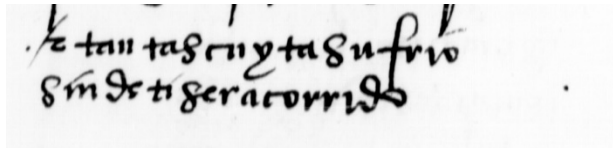 & tan tas cuytas sufrio
sin de ti ser acorrido